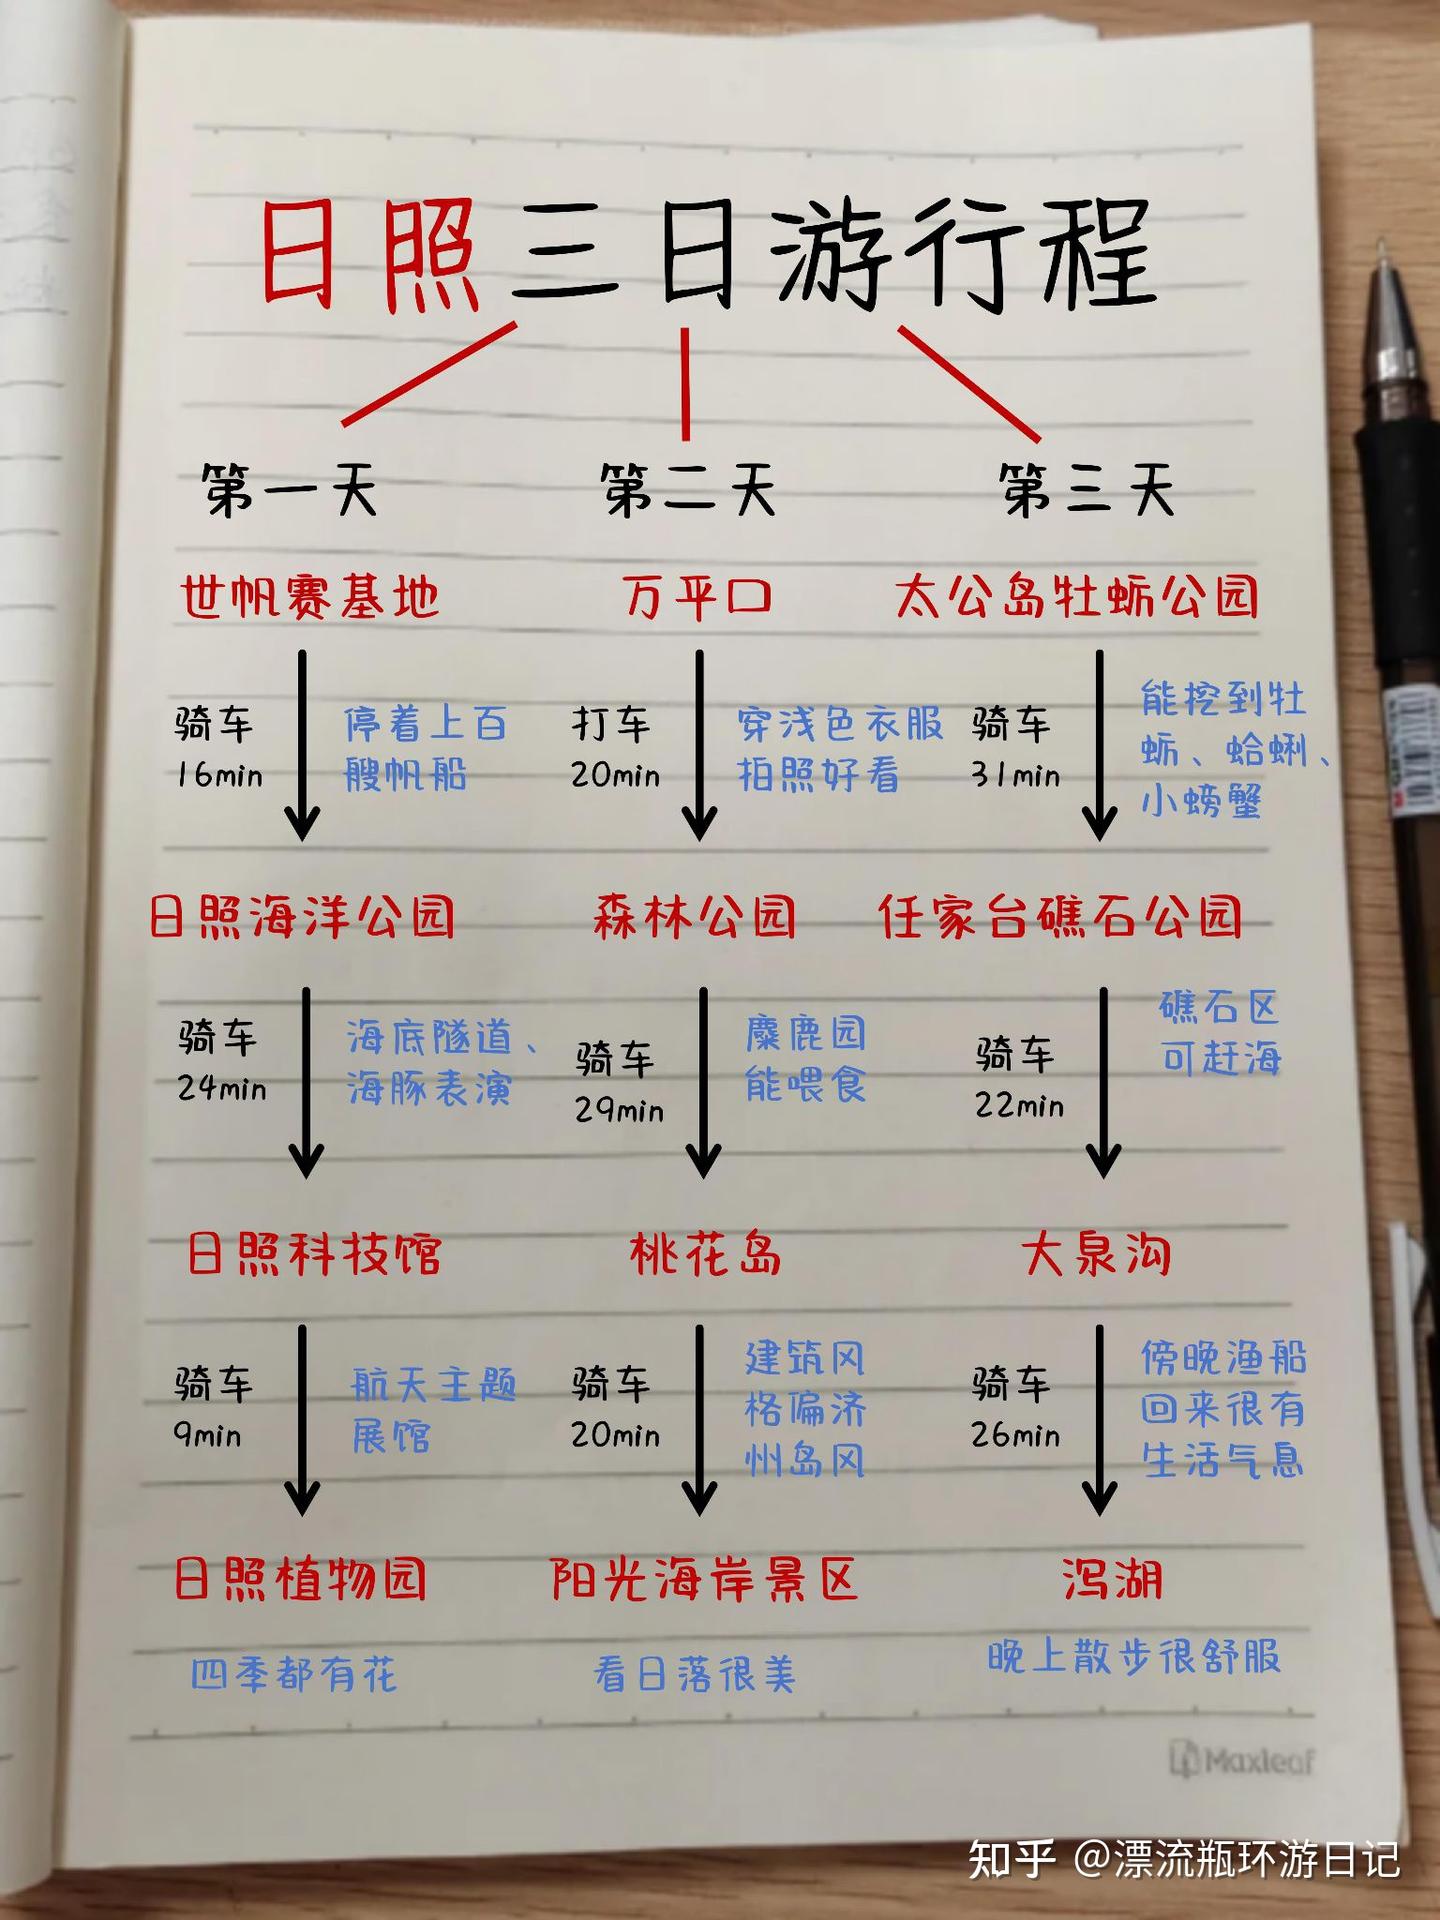 日照三日游行程
第一天
世帆赛基地
骑车
16min
停着上百
艘帆船
日照海洋公园
骑车
24min
海底隧道、
海豚表演
日照科技馆
骑车
9min
航天主题
展馆
日照植物园
四季都有花
第二天
万平口
打车
20min
穿浅色衣服
拍照好看
森林公园
骑车
29min
麋鹿园
能喂食
桃花岛
骑车
20min
建筑风
格偏济
州岛风
阳光海岸景区
看日落很美
第三天
太公岛牡蛎公园
骑车
31min
能挖到牡
蛎、蛤蜊、
小螃蟹
任家台礁石公园
骑车
22min
礁石区
可赶海
大泉沟
骑车
26min
傍晚渔船
回来很有
生活气息
泻湖
晚上散步很舒服
Maxleaf
知乎 @漂流瓶环游日记